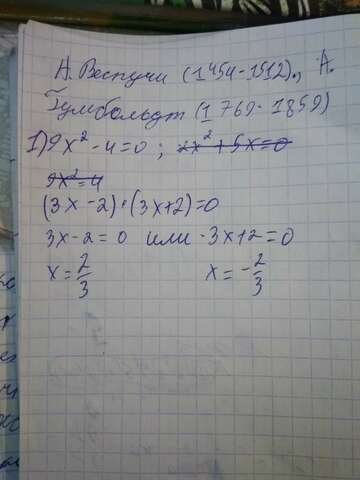 А. Веспучи (1454-1512)., А.
Гумбольдт (1769-1859)
1) 9x² - 4 = 0 ; 2x² + 5x = 0
9x² = 4
(3x - 2) · (3x + 2) = 0
3x - 2 = 0 или 3x + 2 = 0
x = 2/3 x = -2/3